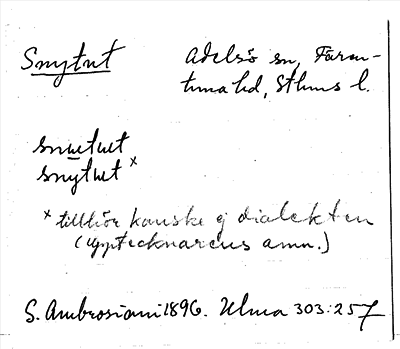 Snytut Adelsö sn, Fären-
tuna hd, Sthms l.
snuetuet
snytuet x
x tillhör kanske ej dialekten
(upptecknarens anm.)
S. Ambrosiani 1896. Ulma 303:257